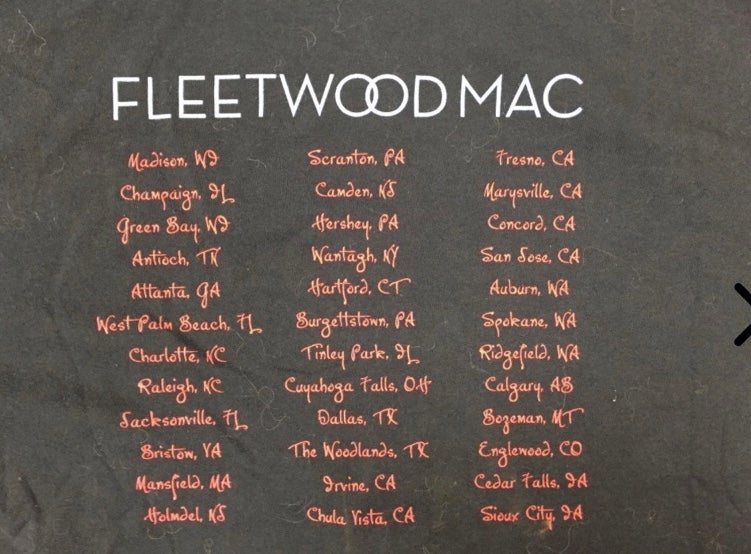 FLEETWOOD MAC
Madison, WI
Champaign, IL
Green Bay, WI
Antioch, TN
Atlanta, GA
West Palm Beach, FL
Charlotte, NC
Raleigh, NC
Jacksonville, FL
Bristow, VA
Mansfield, MA
Holmdel, NJ
Scranton, PA
Camden, NJ
Hershey, PA
Wantagh, NY
Hartford, CT
Burgettstown, PA
Tinley Park, IL
Cuyahoga Falls, OH
Dallas, TX
The Woodlands, TX
Irvine, CA
Chula Vista, CA
Fresno, CA
Marysville, CA
Concord, CA
San Jose, CA
Auburn, WA
Spokane, WA
Ridgefield, WA
Calgary, AB
Bozeman, MT
Englewood, CO
Cedar Falls, IA
Sioux City, IA